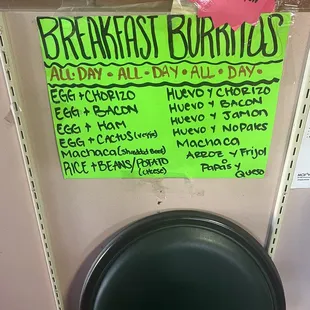 BREAKFAST BURRITOS
ALL·DAY · ALL·DAY · ALL·DAY·
EGG + CHORIZO
EGG + BACON
EGG + HAM
EGG + CACTUS (veggie)
MACHACA (shredded Beef)
RICE + BEANS/POTATO
(cheese)
HUEVO Y CHORIZO
HUEVO Y BACON
HUEVO Y JAMON
HUEVO Y NOPALES
MACHACA
ARROZ Y FRIJOL
O
PAPAS Y
QUESO